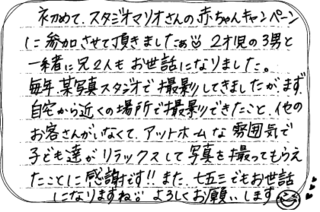 初めて、スタジオマリオさんの赤ちゃんキャンペーン
に参加させて頂きましたぁ 2才児の3男と
一緒に兄2人もお世話になりました。
毎年、某写真スタジオで撮影してきましたが、まず
自宅から近くの場所で撮影できたこと、他の
お客さんがいなくて、アットホームな雰囲気で
子ども達がリラックスして写真を撮ってもらえ
たことに感謝です!!また、七五三でもお世話
になりますね よろしくお願いします